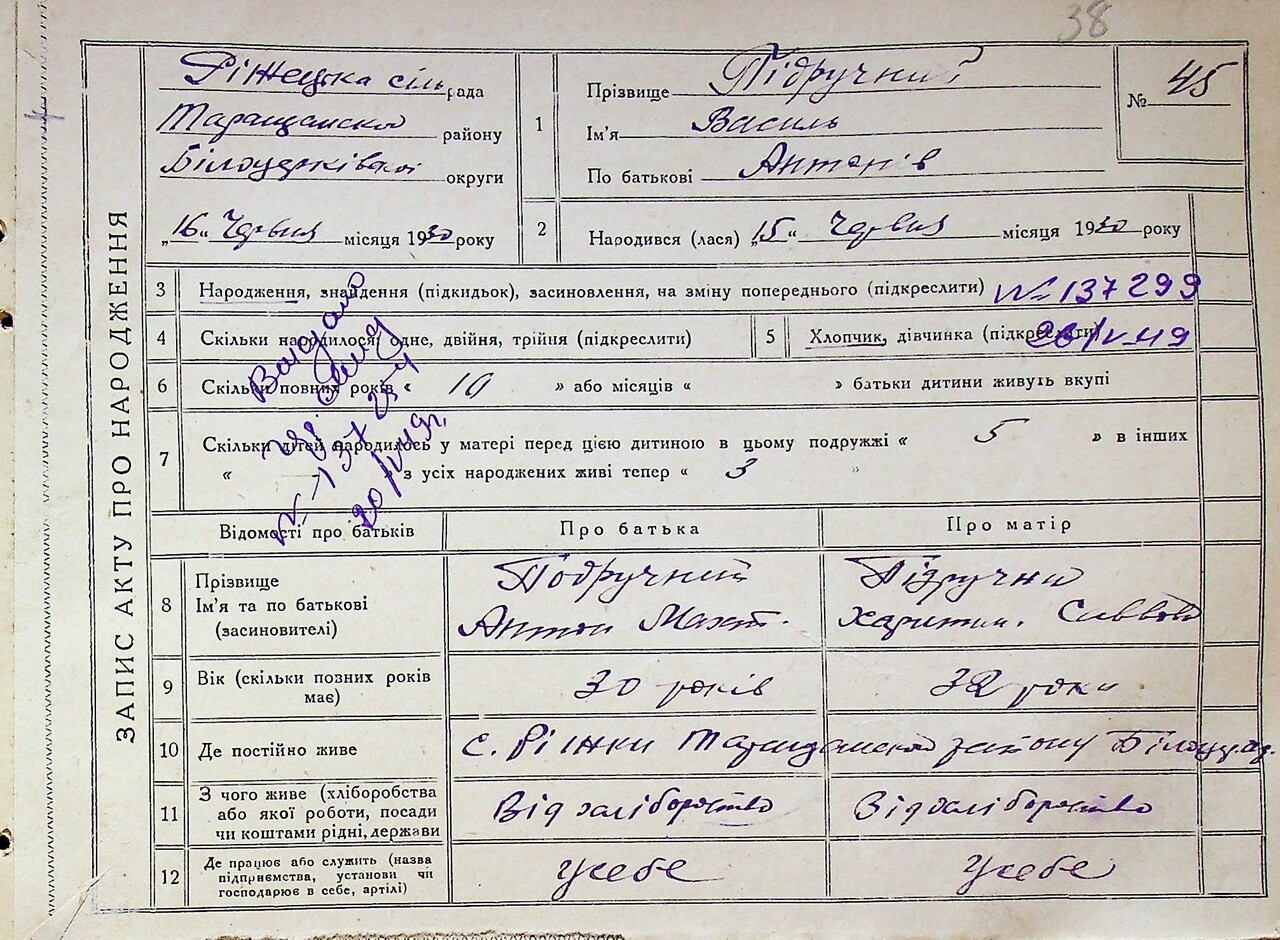 38
ЗАПИС АКТУ ПРО НАРОДЖЕННЯ
Ріжецька сіль рада
Таращамской району
Білоцерківської округи
„16“ Червня місяця 1930 року
1
Прізвище Підручний
Ім'я Василь
По батькові Антонів
№ 45
2
Народився (лася) „15“ Червня місяця 1930 року
3 Народження, знайдення (підкидьок), засиновлення, на зміну попереднього (підкреслити) № 137299
4 Скільки народилося: одне, двійня, трійня (підкреслити)
5 Хлопчик, дівчинка (підкреслити) 20/V-49
6 Скільки повних років « 10 » або місяців « » батьки дитини живуть вкупі
7 Скільки дітей народилось у матері перед цією дитиною в цьому подружжі « 5 » в інших
« — » з усіх народжених живі тепер « 3 »
20/V 49р.
Відомості про батьків Про батька Про матір
8 Прізвище
Ім'я та по батькові
(засновителі)
Подручний
Антон
Підручни
Харитин. Саввова
9 Вік (скільки позних років має) 30 років 32 роки
10 Де постійно живе с. Ріжки Таращамской району Білоц.
11 З чого живе (хліборобства
або якої роботи, посади
чи коштами рідні, держави
Від хліборобство Від хліборобство
12 Де працює або служить (назва
підприємства, установи чи
господарює в себе, артілі)
Усебе Усебе